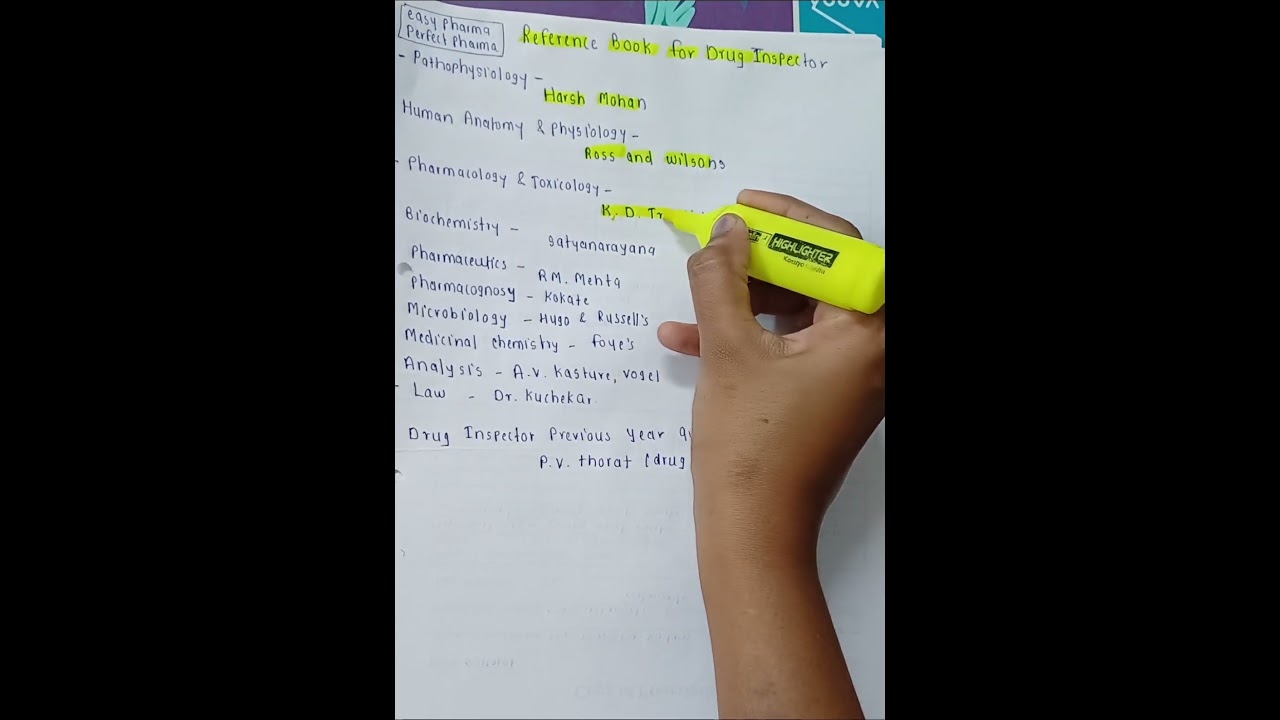 easy pharma
Perfect pharma
Reference Book for Drug Inspector
- Pathophysiology -
Harsh Mohan
Human Anatomy & Physiology -
Ross and Wilsons
- Pharmacology & Toxicology -
K. D. Tr
Biochemistry - Satyanarayana
Pharmaceutics - RM. Mehta
Pharmacognosy - Kokate
Microbiology - Hugo & Russell's
Medicinal chemistry - foye's
Analysis - A.V. Kasture, vogel
- Law - Dr. Kuchekar.
Drug Inspector Previous Year
P.V. thorat (drug
HIGHLIGHTER